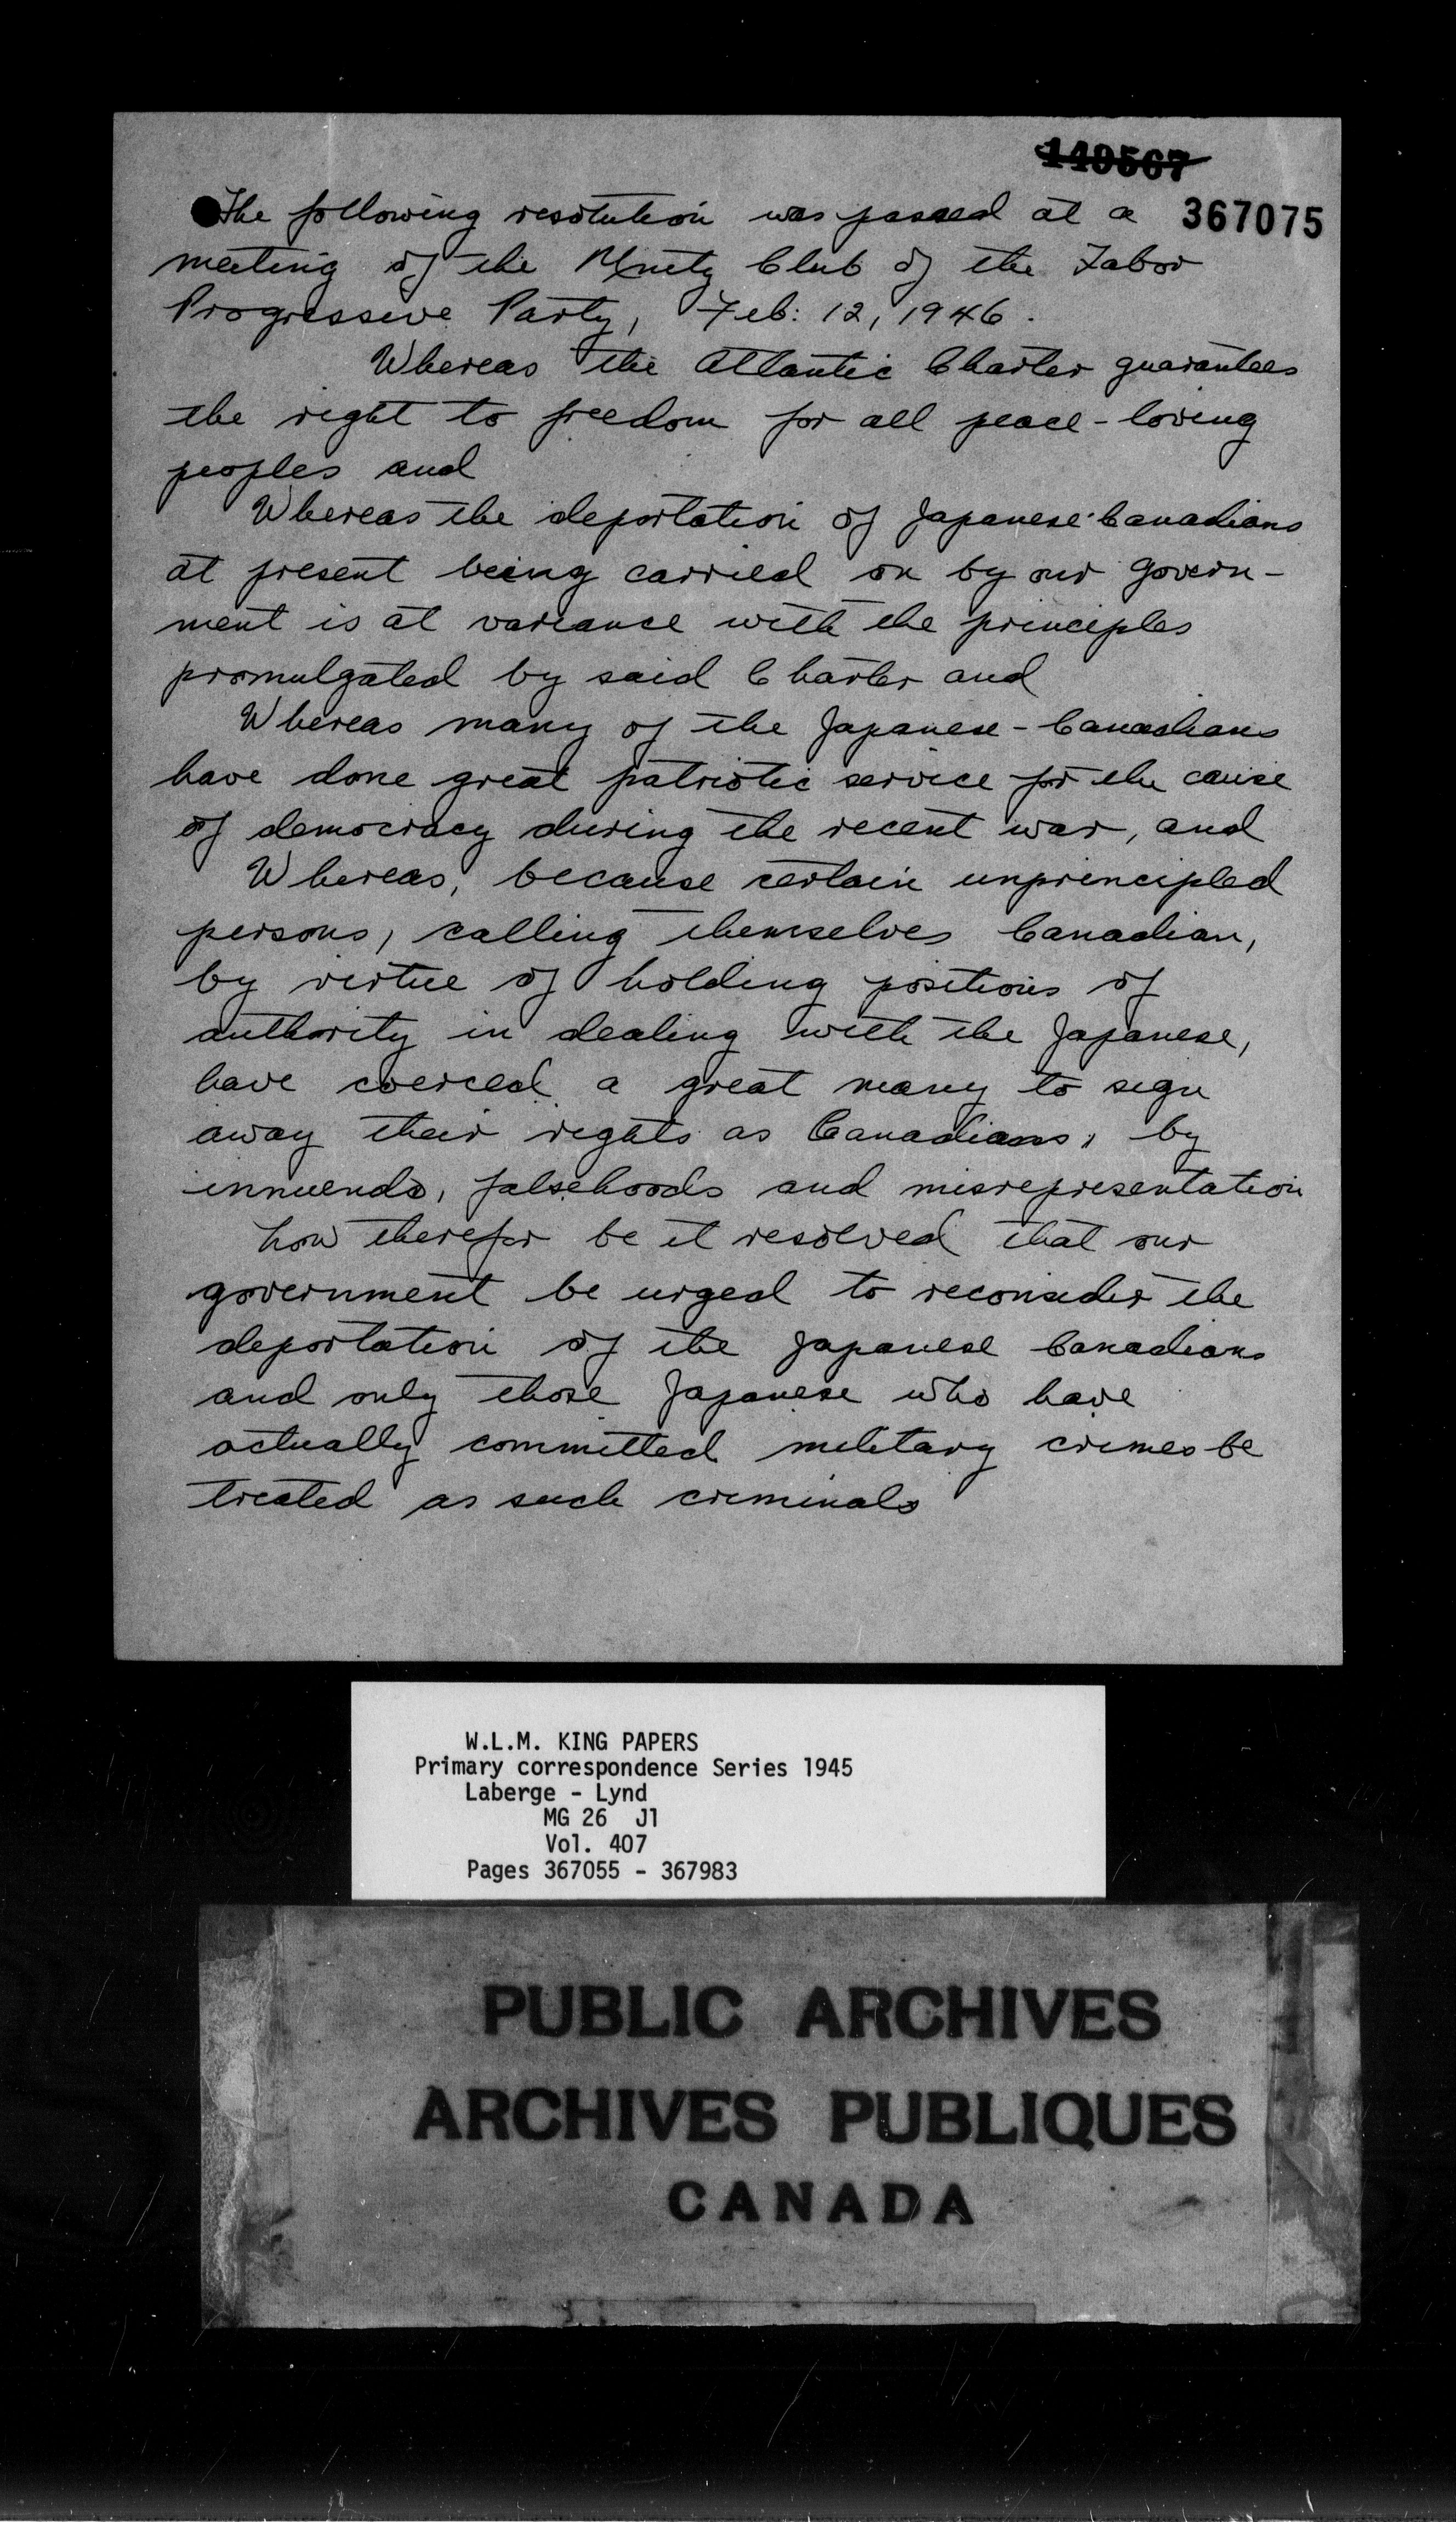 149567
The following resolution was passed at a 367075
meeting of the Unity Club of the Labor
Progressive Party, Feb: 12, 1946.
Whereas the Atlantic Charter guarantees
the right to freedom for all peace-loving
peoples and
Whereas the deportation of Japanese-Canadians
at present being carried on by our govern-
ment is at variance with the principles
promulgated by said Charter and
Whereas many of the Japanese-Canadians
have done great patriotic service for the cause
of democracy during the recent war, and
Whereas, because certain unprincipled
persons, calling themselves Canadian,
by virtue of holding positions of
authority in dealing with the Japanese,
have coerced a great many to sign
away their rights as Canadians, by
innuendo, falsehoods and misrepresentation
Now therefor be it resolved that our
government be urged to reconsider the
deportation of the Japanese Canadians
and only those Japanese who have
actually committed military crimes be
treated as such criminals
W.L.M. KING PAPERS
Primary correspondence Series 1945
Laberge - Lynd
MG 26 J1
Vol. 407
Pages 367055 - 367983
PUBLIC ARCHIVES
ARCHIVES PUBLIQUES
CANADA